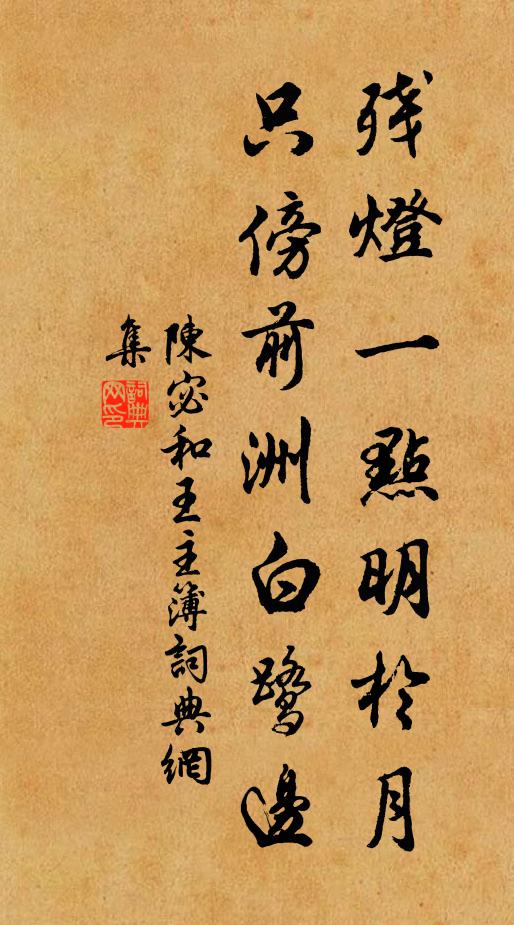 残燈一點明於月
只傍前洲白鹭邊
陳宓和王主簿詞典網
集
詞典網印